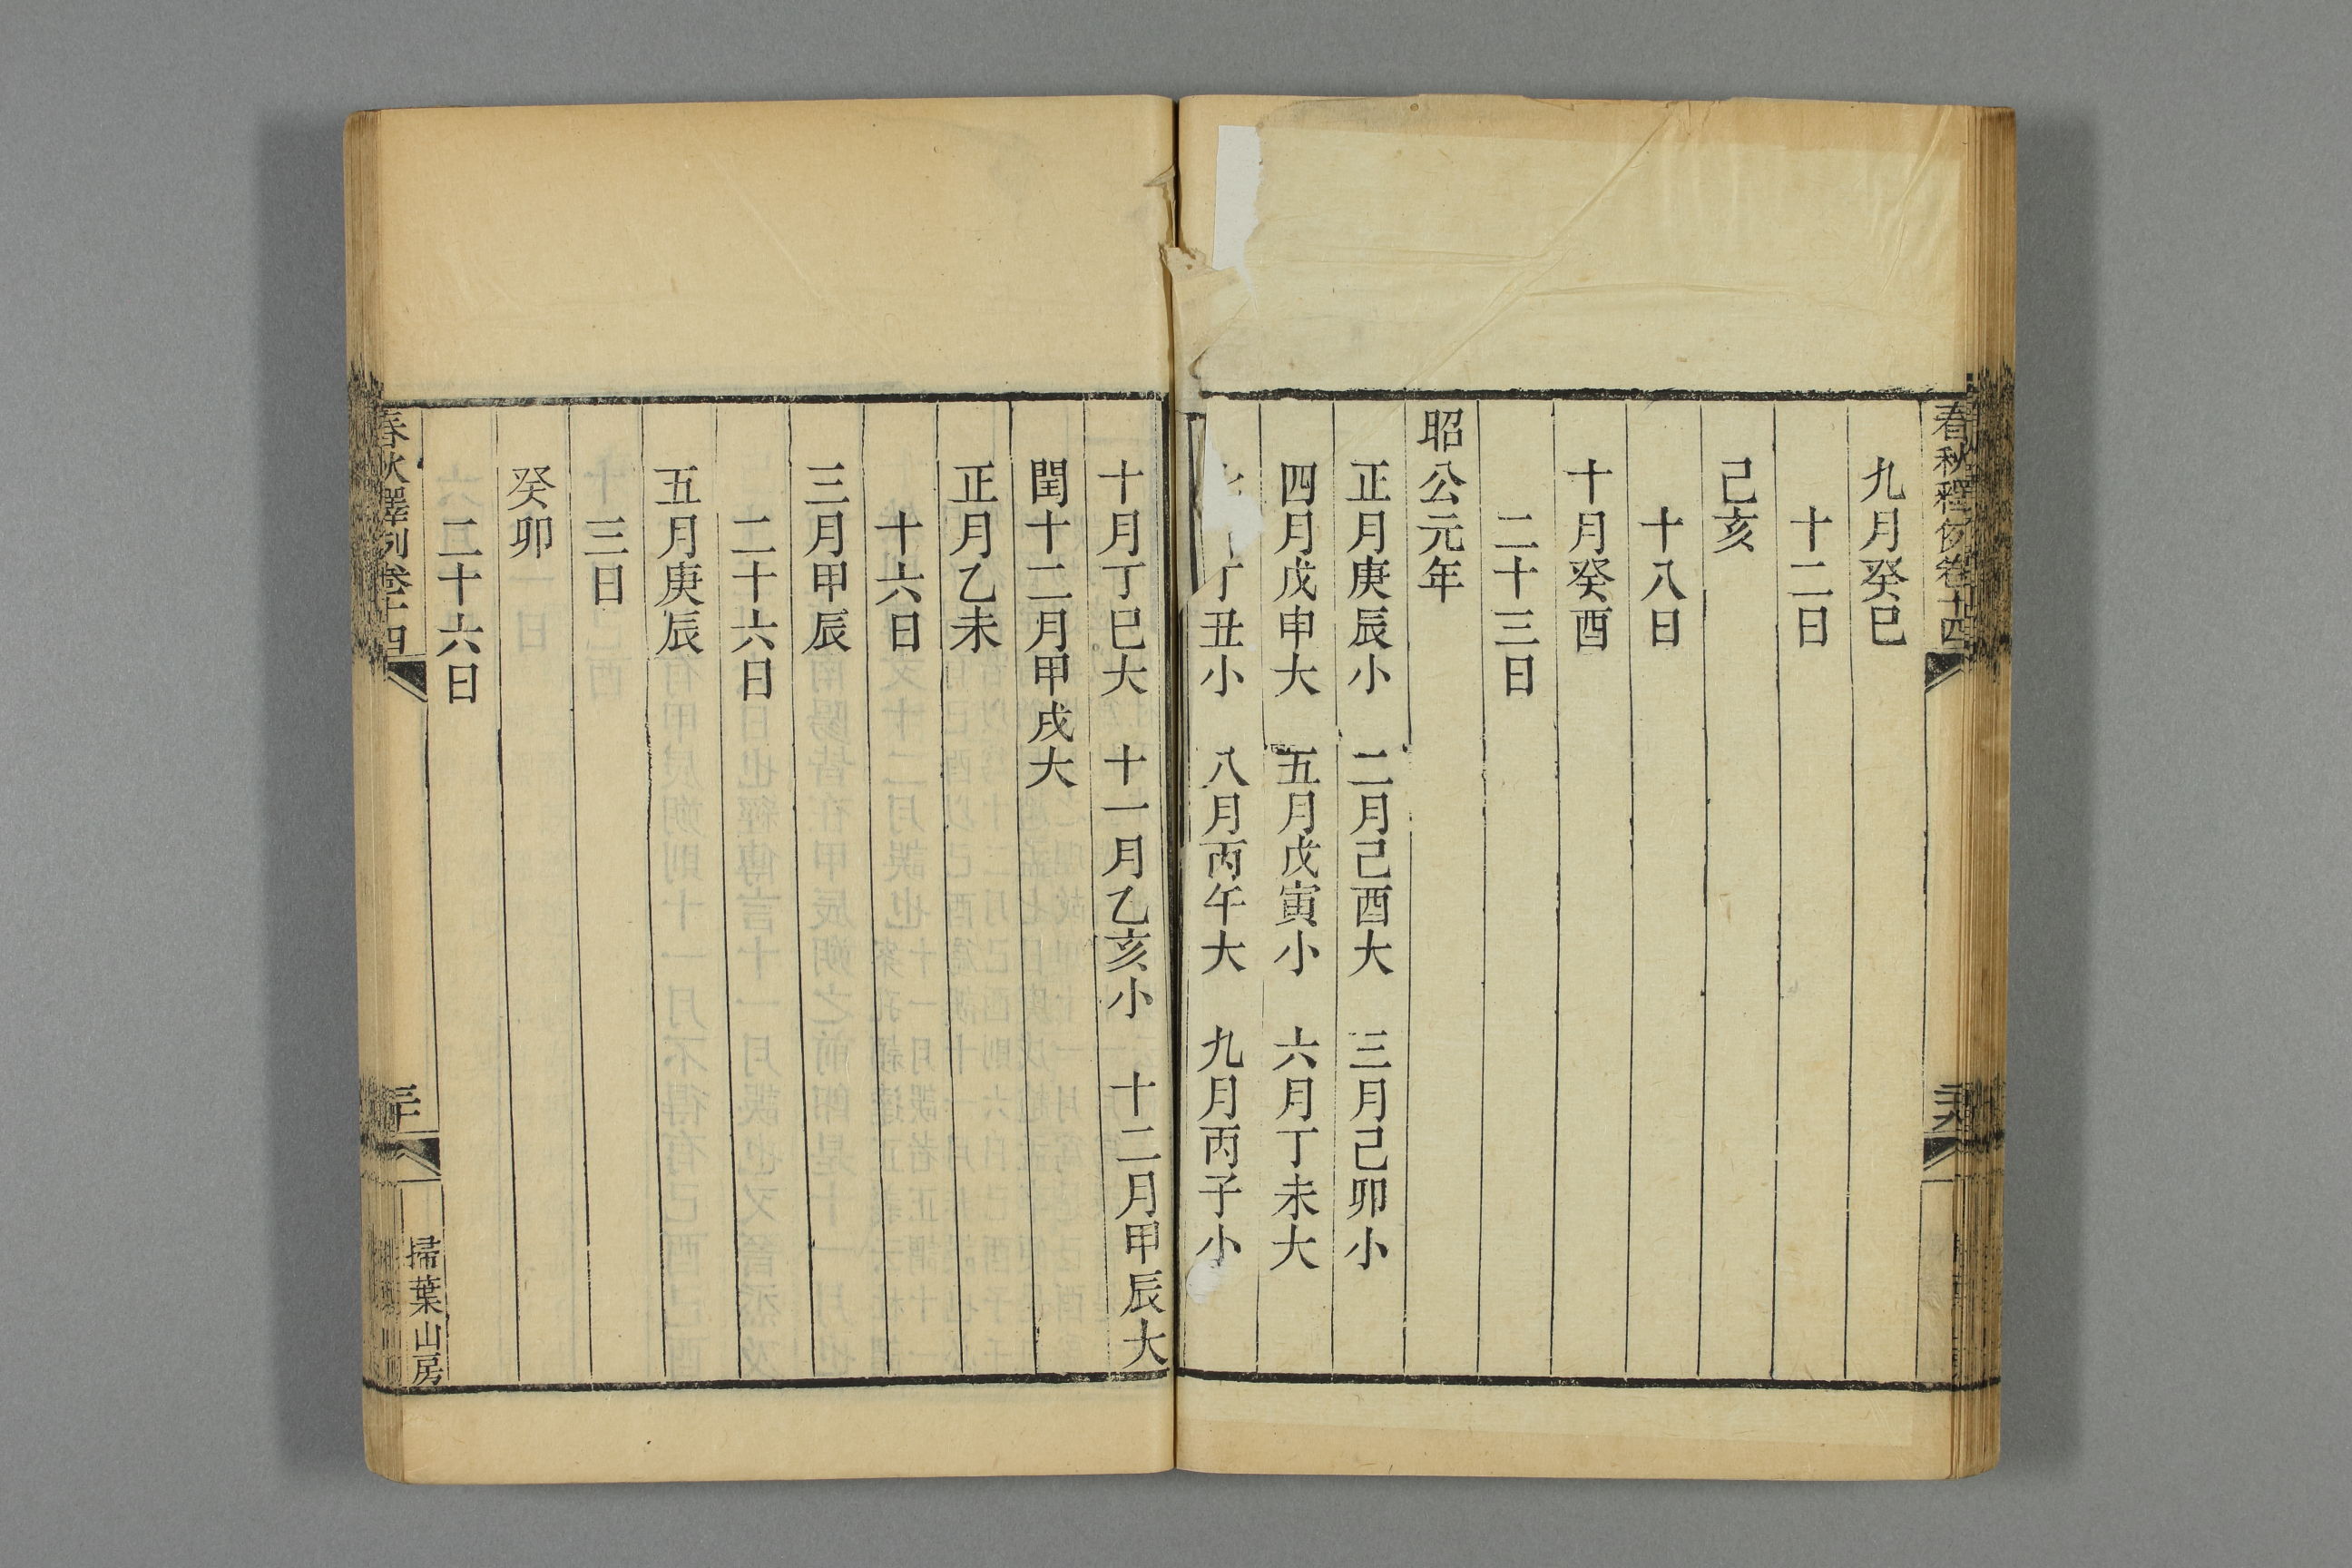 春秋釋例卷十四
九月癸巳
十二日
己亥
十八日
十月癸酉
二十三日
昭公元年
正月庚辰小 二月己酉大 三月己卯小
四月戊申大 五月戊寅小 六月丁未大
丁丑小 八月丙午大 九月丙子小
十月丁巳大 十一月乙亥小 十二月甲辰大
閏十二月甲戌大
正月乙未
十六日
三月甲辰
二十六日
五月庚辰
三日
癸卯
二十六日
春秋釋例卷十四
掃葉山房